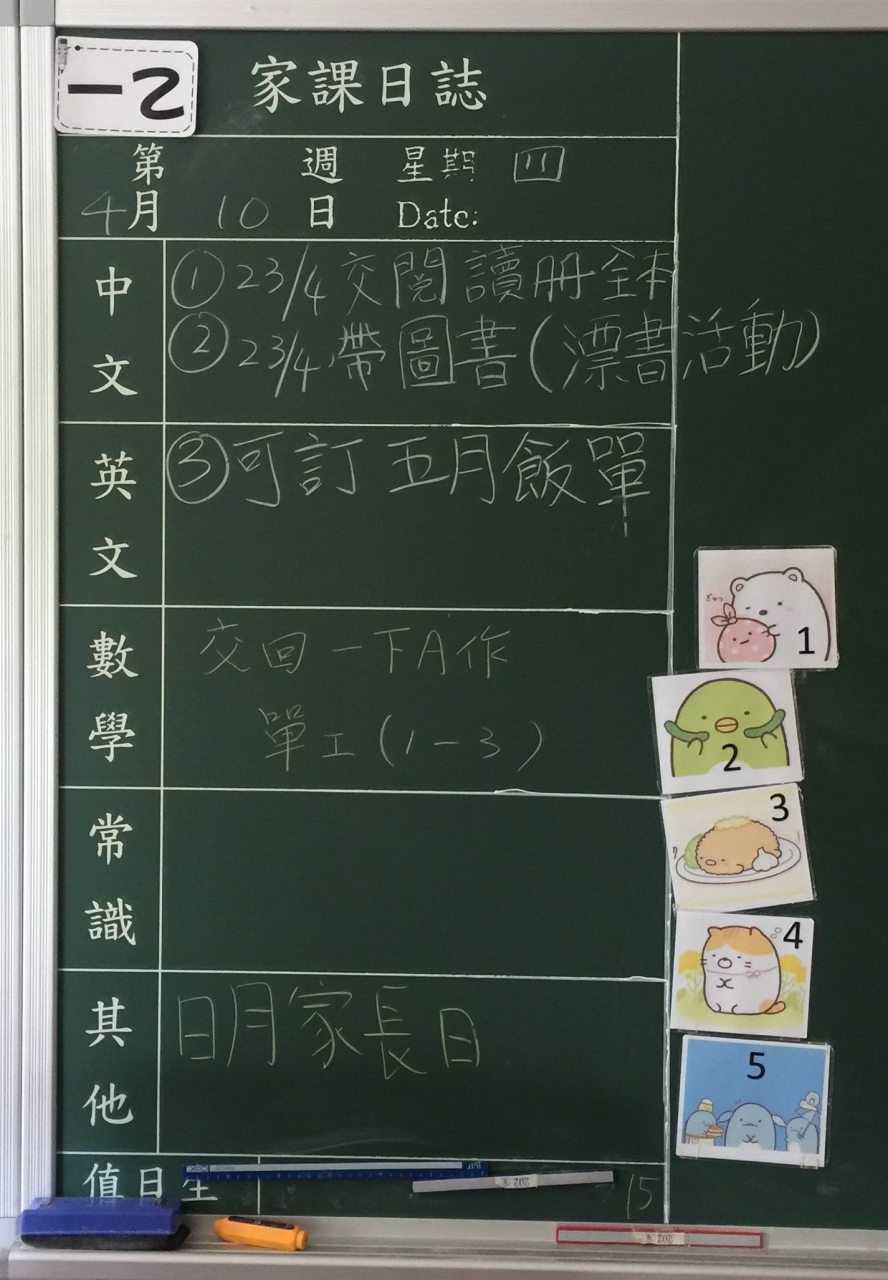 一乙
家課日誌
第 週 星期 四
4月 10 日 Date:
中文
①23/4交閱讀册全本
②23/4帶圖書(漂書活動)
英文
③可訂五月飯單
數學
交回一下A作
單工(1-3)
常識
其他
日月家長日
值日生
15
1
2
3
4
5
202
202